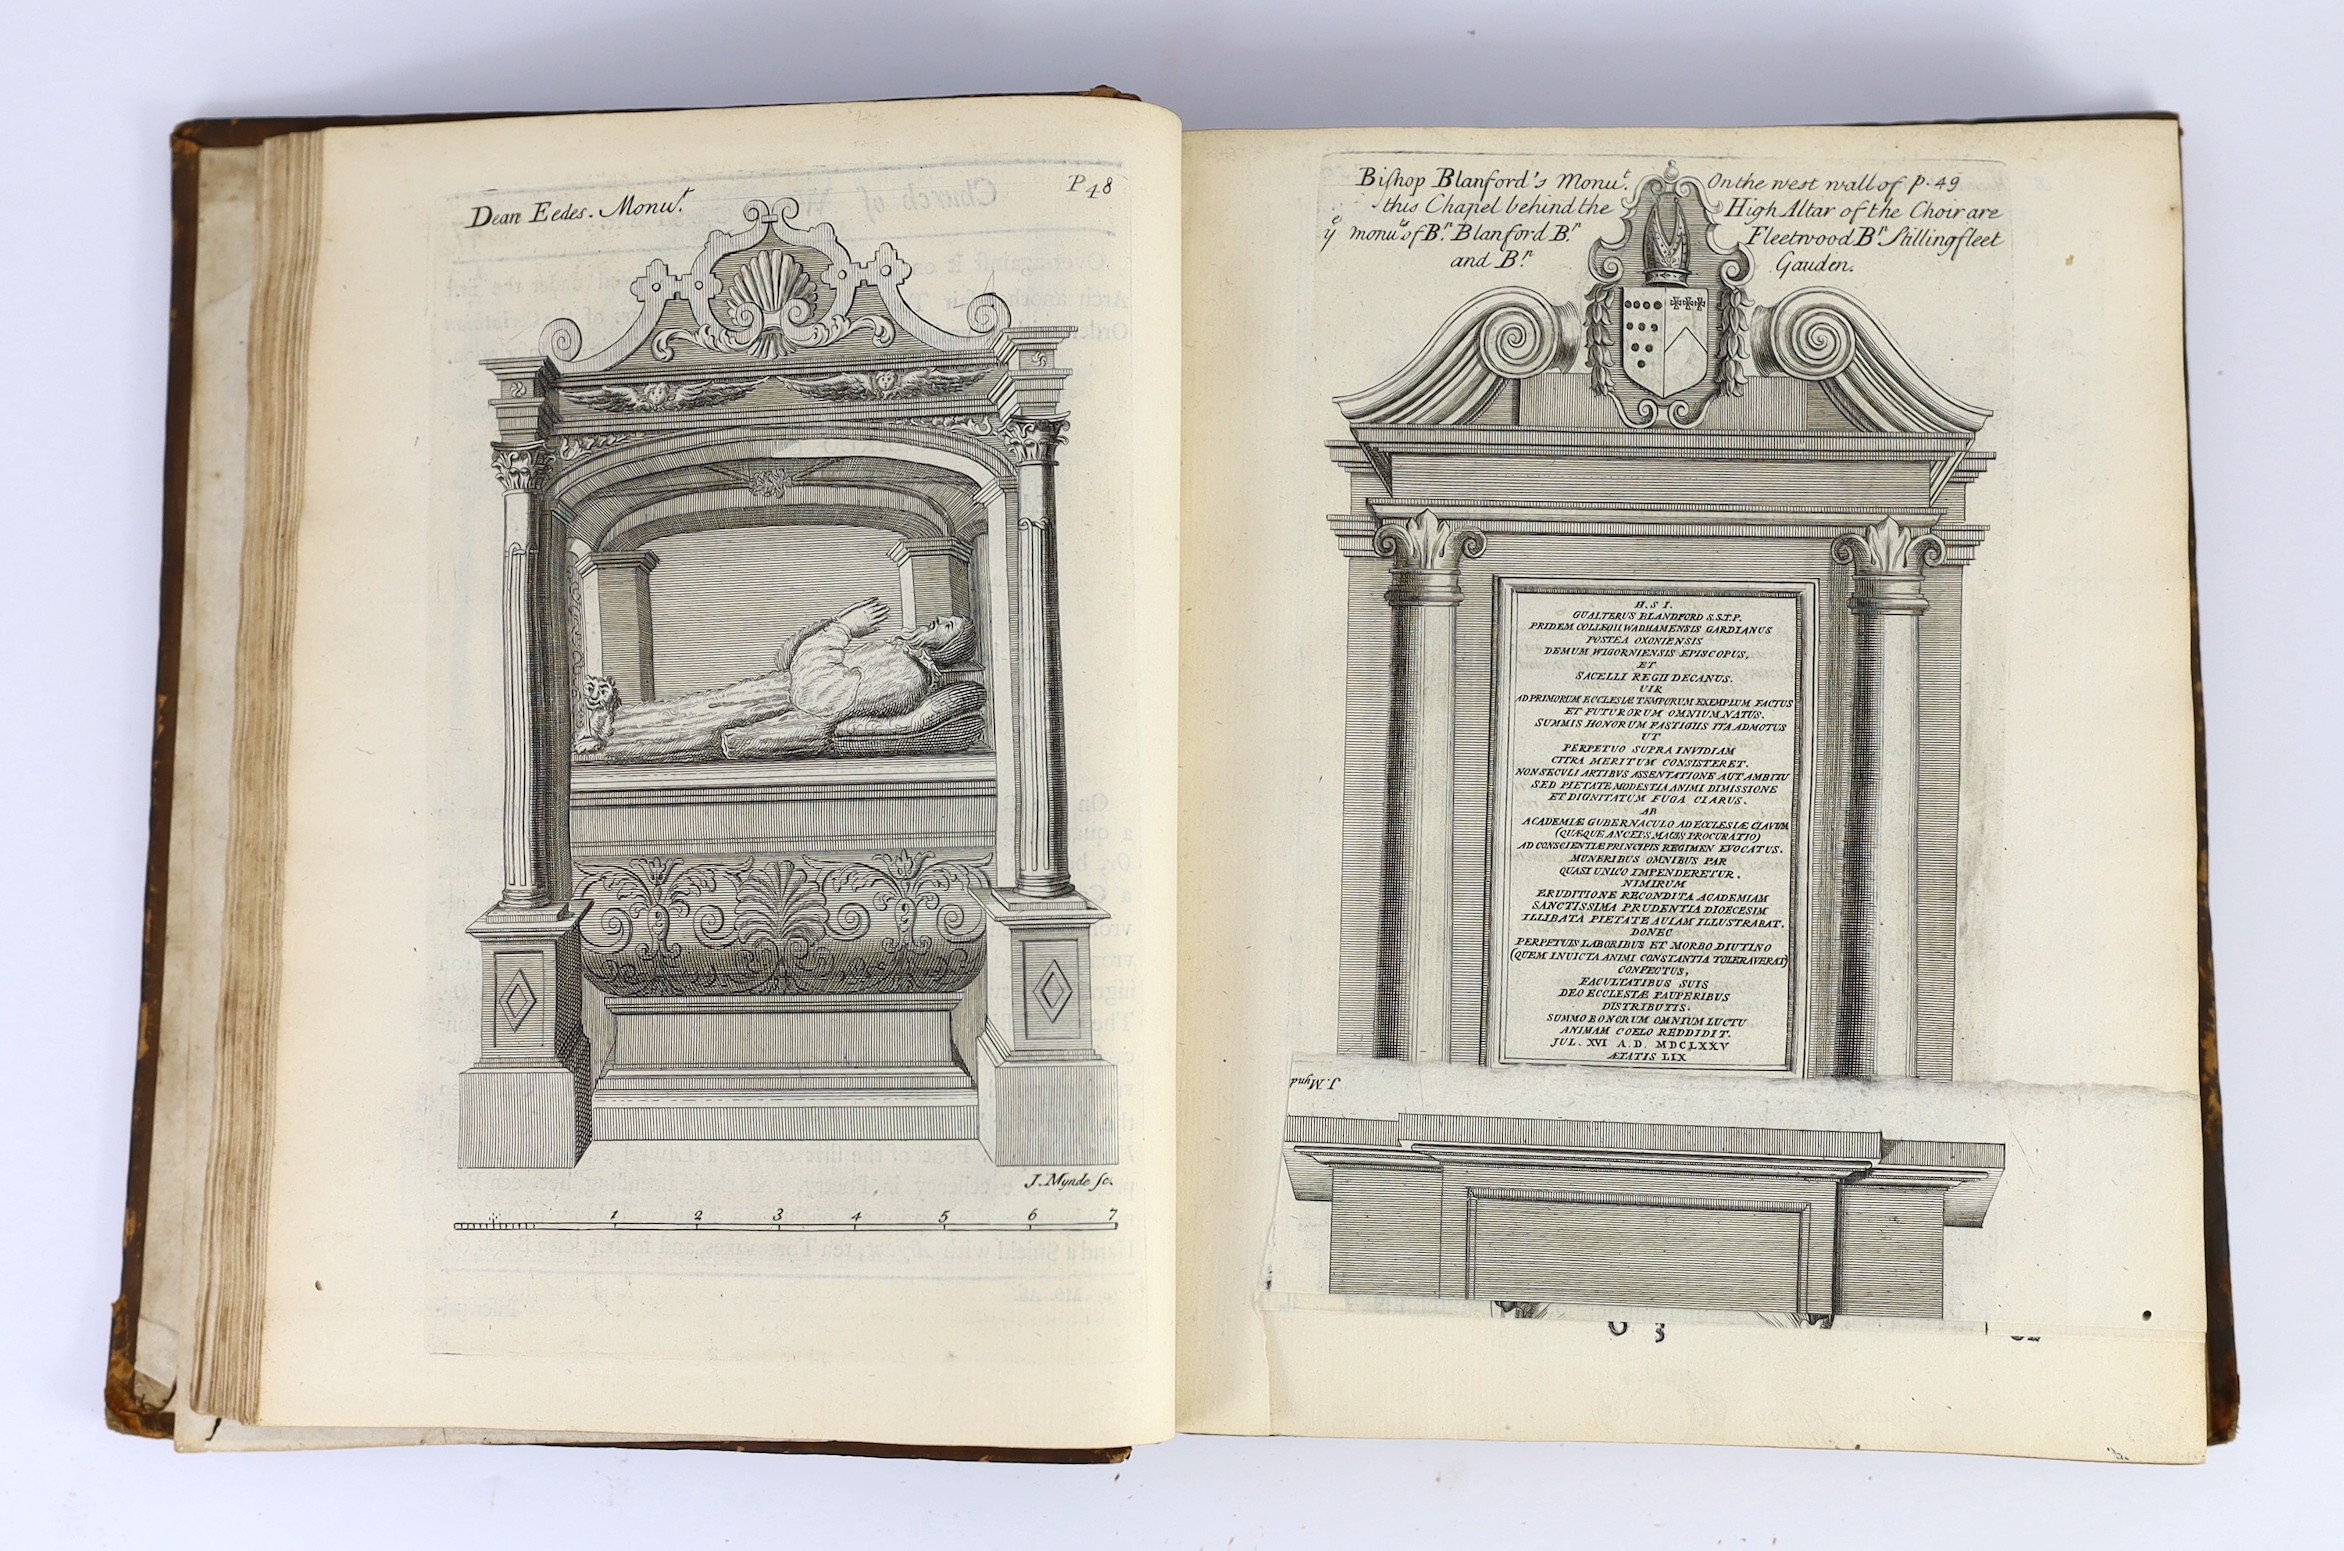 Dean Eedes. Monu.t
P 48
J. Mynde sc.
1 2 3 4 5 6 7
Bishop Blanford's Monu.t On the west wall of P. 49
this Chapel behind the High Altar of the Choir are
ye monu.ts of B.p Blanford B.p Fleetwood B.p Stillingfleet
and B.p Gauden.
H. S I.
GUALTERUS BLANDFORD S.S.T.P.
PRIDEM COLLEGII WADHAMENSIS GARDIANUS
POSTEA OXONIENSIS
DEMUM WIGORNIENSIS EPISCOPUS,
ET
SACELLI REGII DECANUS.
UIR
AD PRIMORUM ECCLESIÆ TEMPORUM EXEMPLUM FACTUS
ET FUTURORUM OMNIUM NATUS.
SUMMIS HONORUM FASTIGIIS ITA ADMOTUS
UT
PERPETUO SUPRA INVIDIAM
CITRA MERITUM CONSISTERET.
NON SECULI ARTIBVS ASSENTATIONE AUT AMBITU
SED PIETATE MODESTIA ANIMI DIMISSIONE
ET DIGNITATUM FUGA CLARUS.
AB
ACADEMIÆ GUBERNACULO AD ECCLESIÆ CLAVUM
(QUÆQUE ANCEPS MAGIS PROCURATIO)
AD CONSCIENTIÆ PRINCIPIS REGIMEN EVOCATUS.
MUNERIBUS OMNIBUS PAR
QUASI UNICO IMPENDERETUR.
NIMIRUM
ERUDITIONE RECONDITA ACADEMIAM
SANCTISSIMA PRUDENTIA DIOECESIM
ILLIBATA PIETATE AULAM ILLUSTRABAT.
DONEC
PERPETUIS LABORIBUS ET MORBO DIUTINO
(QUEM INUICTA ANIMI CONSTANTIA TOLERAVERAT)
CONFECTUS,
FACULTATIBUS SUIS
DEO ECCLESIÆ PAUPERIBUS
DISTRIBUTIS.
SUMMO BONORUM OMNIUM LUCTU
ANIMAM COELO REDDIDIT.
JUL. XVI A.D. MDCLXXV
ÆTATIS LIX
J. Mynd